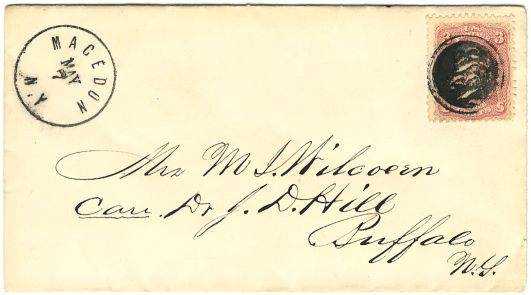 MACEDON
MAY
7
N.Y
3 3
Mrs M J. Wilcoern
Care. Dr J. D. Hill
Buffalo
N.Y.